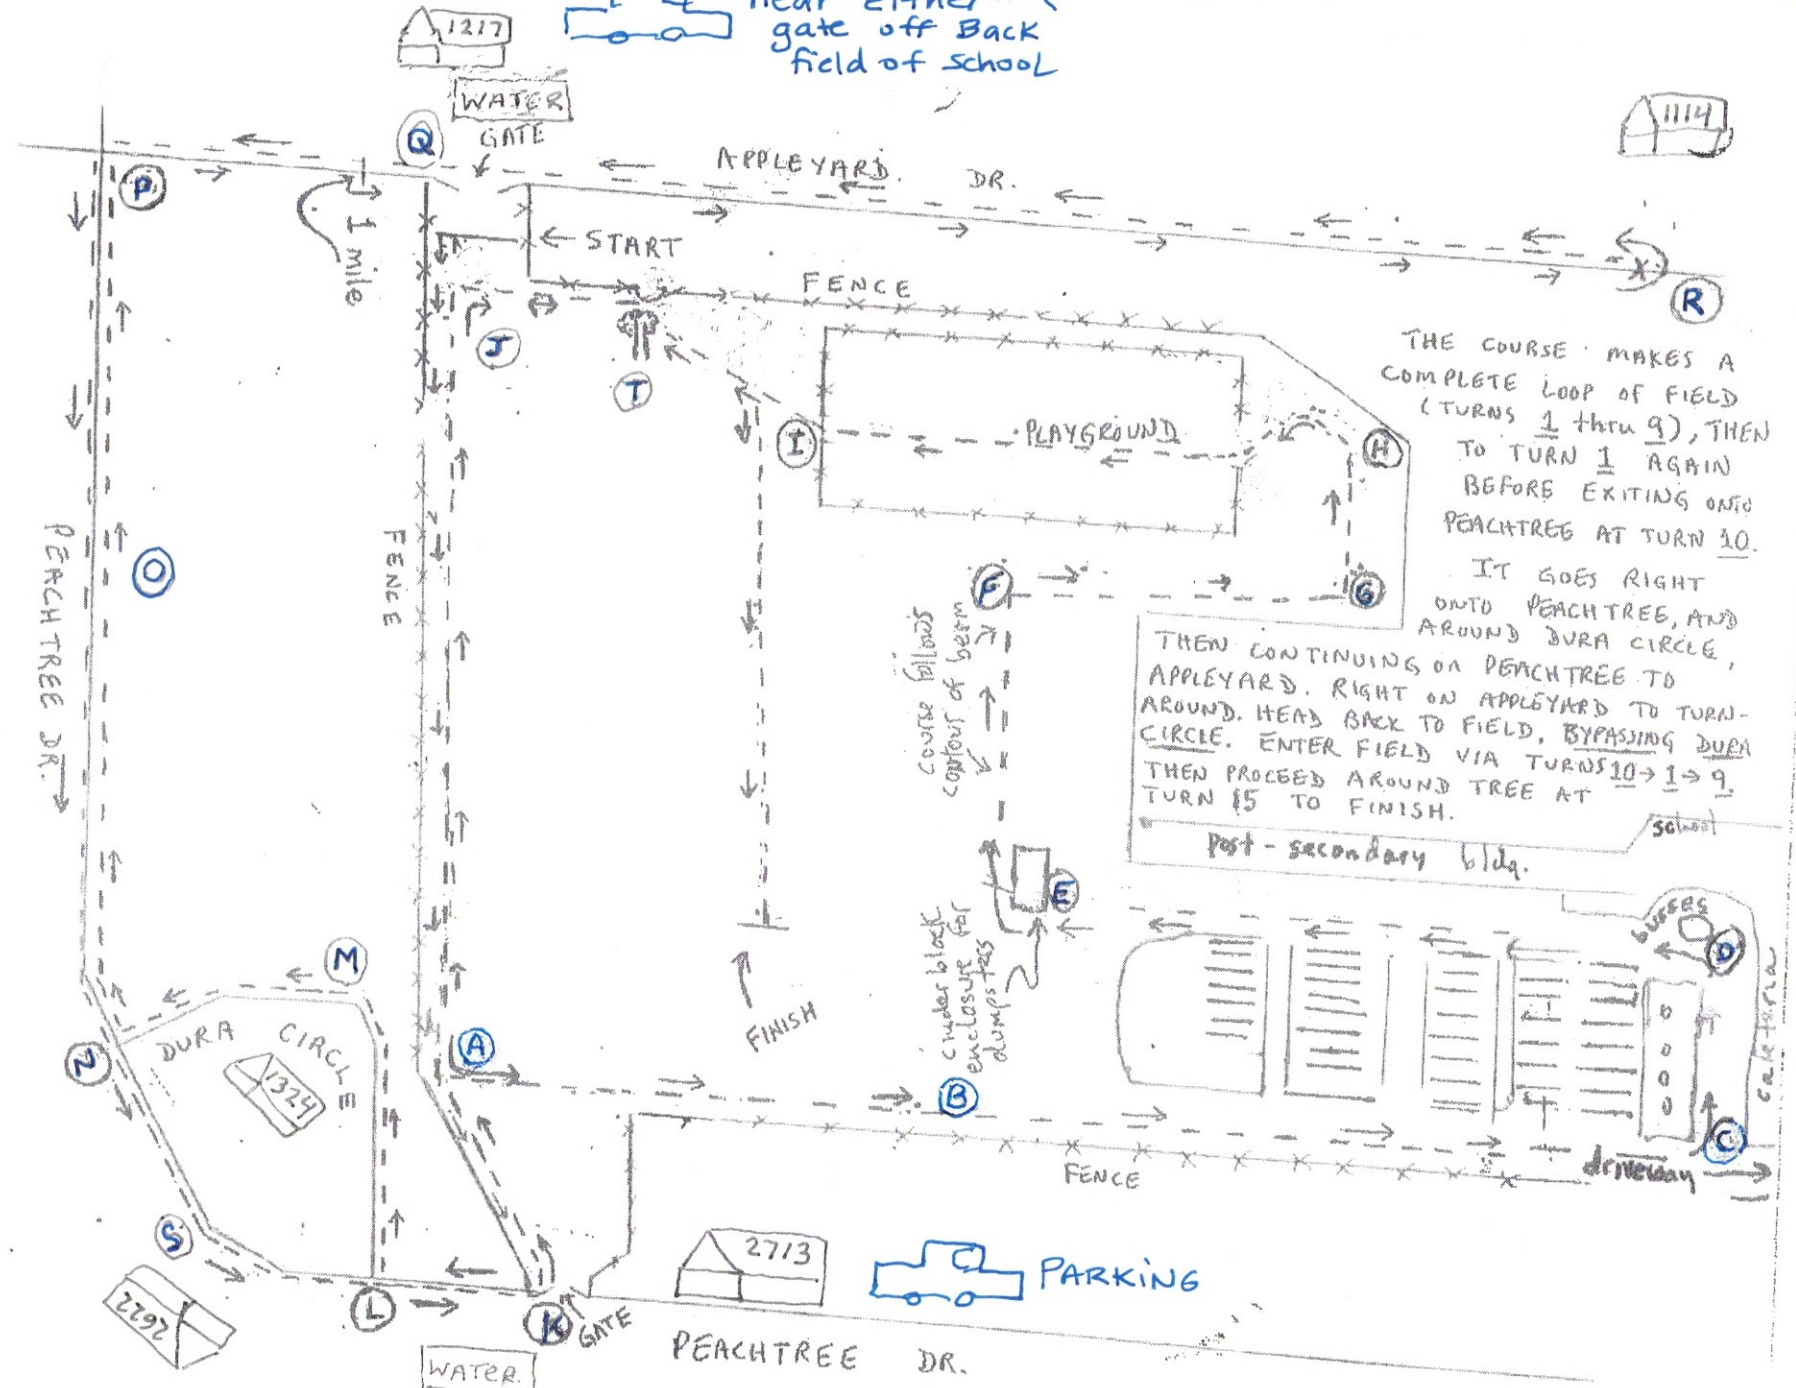 near either
gate off Back
field of school
1217
WATER
GATE
Q
1114
P
APPLEYARD DR.
1 mile
START
FENCE
R
J
T
I
PLAYGROUND
H
THE COURSE MAKES A
COMPLETE LOOP OF FIELD
(TURNS 1 thru 9), THEN
TO TURN 1 AGAIN
BEFORE EXITING ONTO
PEACHTREE AT TURN 10.
IT GOES RIGHT
ONTO PEACHTREE, AND
AROUND DURA CIRCLE,
THEN CONTINUING ON PEACHTREE TO
APPLEYARD. RIGHT ON APPLEYARD TO TURN-
AROUND. HEAD BACK TO FIELD, BYPASSING DURA
CIRCLE. ENTER FIELD VIA TURNS 10→1→9.
THEN PROCEED AROUND TREE AT
TURN 15 TO FINISH.
PEACHTREE DR.
O
FENCE
F
G
course follows
contour of berm
school
Post-secondary bldg.
E
cinder block
enclosure for
dumpsters
busses
D
cafeteria
M
FINISH
N
DURA CIRCLE
1324
A
B
C
FENCE
driveway
S
2622
L
K
GATE
2713
PARKING
WATER
PEACHTREE DR.